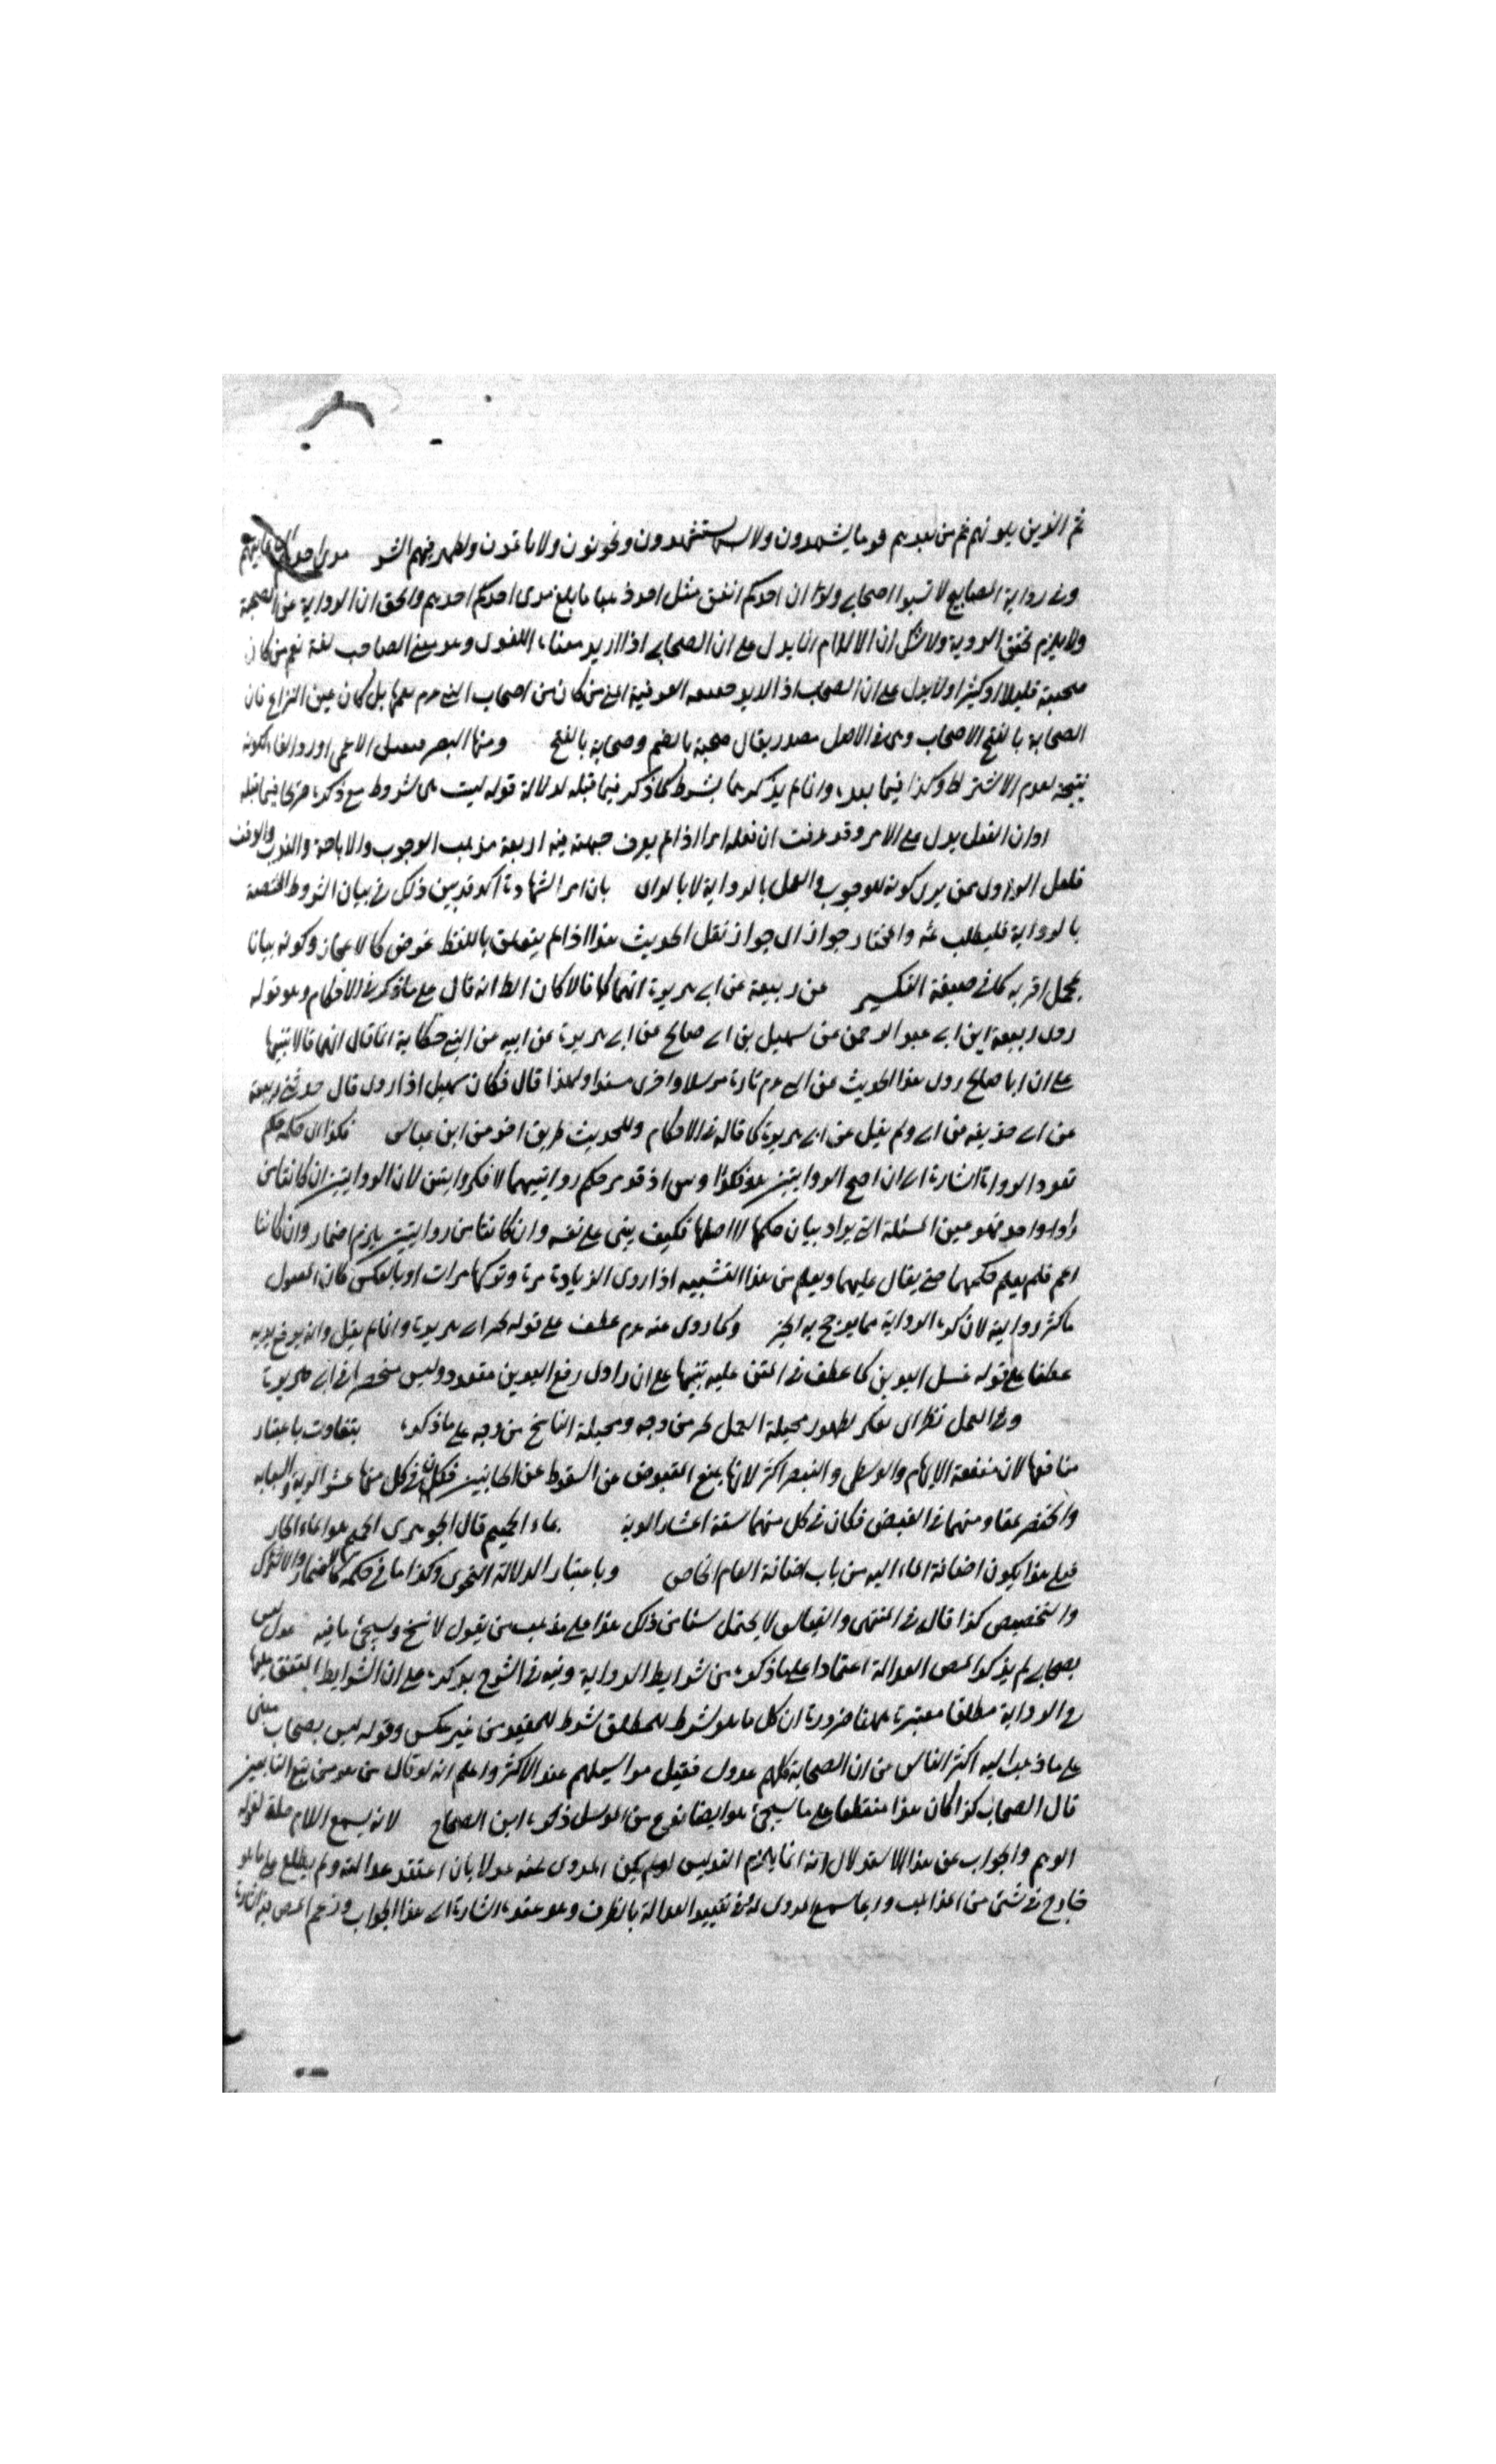 ثم الذين يلونهم ثم من بعدهم قوما يشهدون ولا يستشهدون ويخونون ولا يؤتمنون ويظهر فيهم
وفي رواية المصابيح لا تسبوا اصحابي ولو ان احدكم انفق مثل احد ذهبا ما بلغ مدى احدكم احدهم والحق ان الرواية عن الصحبة
ولا يلزم تحقق الروية ولا شك ان الالزام انما يدل على ان الصحابي اذا اريد معناه اللغوي وهو بمعنى الصاحب لغة نعم من كان
صحبته قليلا او كثيرا ولا يدل على ان الصحابي اذا اريد العرفية اعني من كان من اصحاب النبي عم بل كان عين النزاع فان
الصحابة بالفتح الاصحاب وهي في الاصل مصدر يقال صحبة بالضم وصحابة بالفتح ومنها البصر الاعمى اورد الفاء لكونه
نتيجة لعدم الاشتراط وكذا فيما بعده وانما لم يذكر بشرط كما ذكر فيما قبله لدلالة قوله ليست بشروط مع ذكره فيما قبله
او ان الفعل يدل على الامر وقد عرفت ان فعله اذا لم يعرف جهته فيه اربعة مذهب الوجوب والاباحة والندب والوقف
فلعل الراوي ممن يرى كونه للوجوب والعمل بالرواية لا بالراي بان امر الشهادة آكد قد بين ذلك في بيان الشروط المختصة
بالرواية فليطلب ثمه والمختار جوازه اي جواز نقل الحديث هذا اذا لم يتعلق باللفظ غرض كالاعجاز وكونه بيانا
لمجمل اقر به كما في صيغة التكبير عن ربيعة عن ابي هريرة انهما قالا كان الظ انه قال على ما ذكر في الاحكام وهو قوله
روى ربيعة ابن ابي عبد الرحمن عن سهيل بن ابي صالح عن ابي هريرة عن ابيه عن النبي حكاية انما قال انهما قالا تنبيها
على ان ابا صالح روى هذا الحديث عن النبي عم تارة مرسلا واخرى مسندا ولهذا قال فكان سهيل اذا روى قال حدثني ربيعة
عن ابي ولم يقل عن ابي هريرة كما قاله في الاحكام وللحديث طريق اخر عن ابن عباس فكذا اي حكمه حكم
تعدد الرواة اشارة الى ان اصح الروايتين هو فكذا اذ قد مر حكم روايتيهما لا فكروايتين لان الروايتين ان كانتا من
راو واحد فهو عين المسئلة التي يراد بيان حكمها لا اصلها فكيف يبنى على نفسه وان كانتا من روايتين يلزم اضمار وان كانتا
اعم فلم يعلم حكمهما حتى يقال عليهما ويعلم من هذا التشبيه اذا روى الزيادة مرة وتركها مرات او بالعكس كان المعمول
ما كثر روايته لان كثرة الرواية مما يرجح به الخبر وكما روى عنه عم عطف على قوله ابي هريرة وانما لم يقل وانه يرفع يديه
عطفا على قوله غسل اليدين كما عطف في المتن عليه تنبيها على ان راوي رفع اليدين متعدد وليس منحصرا في ابي هريرة
وفي العمل نظر اي لظهور مخيلة العمل من وجه ومخيلة الناسخ من وجه على ما ذكره بتفاوت باعتبار
منافعها لان منفعة الابهام والوسطى والبنصر اكثر لانها تمنع المقبوض عن السقوط عن الجانبين فكان في كل منها عشر الدية
والخنصر تقاومهما في القبض فكان في كل منهما ستة اعشار الدية بماء الحميم قال الجوهري الحميم هو الماء الحار
فعلى هذا يكون اضافة الماء اليه من باب اضافة العام الخاص وباعتبار الدلالة الفحوى وكذا ما في حكمه كالاضمار والاشتراك
والتخصيص كذا قال في المنتهى والقياس لا يحتمل شيئا من ذلك هذا على مذهب من يقول لا نسخ وسيجئ ما فيه عدل ليس
بصحابي لم يذكر المص العدالة اعتمادا على ما ذكره من شرايط الرواية وقيد في الشرح بذكره على ان الشرايط المتفق عليها
في الرواية مطلقا معتبرة ههنا ضرورة ان كل ما هو شرط للمطلق شرط للمقيد من غير عكس وقوله ليس بصحابي مبني
على ما ذهب اليه اكثر الناس من ان الصحابة كلهم عدول فقيل مراسيلهم عند الاكثر واعلم انه لو قال من هو من تبع التابعين
قال الصحابي كذا كان هذا منقطعا على ما سيجئ هو ايضا نوع من المرسل ذكره ابن الصلاح لانه يسمع اللام صلة لقوله
الوهم والجواب عن هذا الاستدلال انه انما يلزم التدليس لو لم يكن المروي عنه عدلا بان اعتقد عدالته ولم يطلع على ما هو
جارح في شئ من المذاهب وربما سمع المروي له في تقييد العدالة بالظرف وهو عنده اشارة الى هذا الجواب وزعم المص